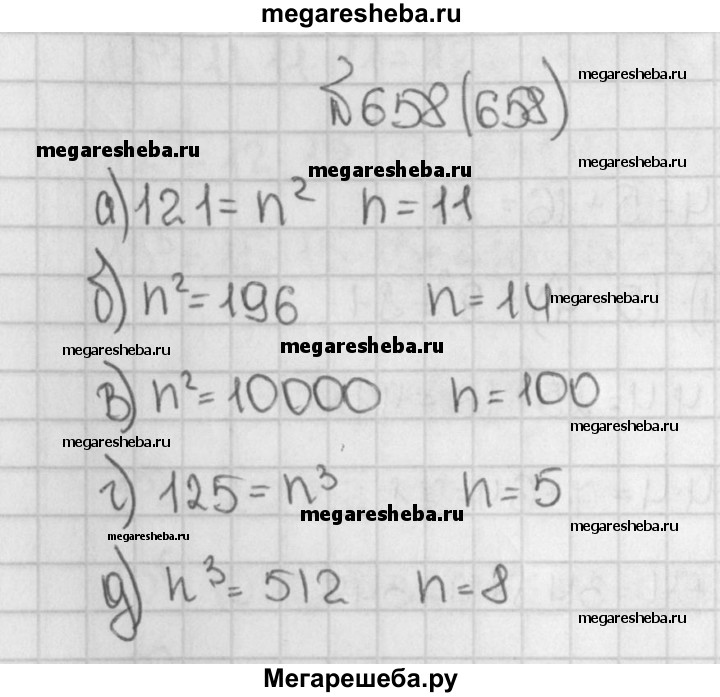 megaresheba.ru
№658(658)
megaresheba.ru
megaresheba.ru
megaresheba.ru
megaresheba.ru
а) 121 = n² n = 11
б) n² = 196 n = 14
megaresheba.ru
megaresheba.ru
megaresheba.ru
megaresheba.ru
в) n² = 10000 n = 100
megaresheba.ru
megaresheba.ru
г) 125 = n³ n = 5
megaresheba.ru
megaresheba.ru
megaresheba.ru
д) n³ = 512 n = 8
megaresheba.ru
Мегарешеба.ру